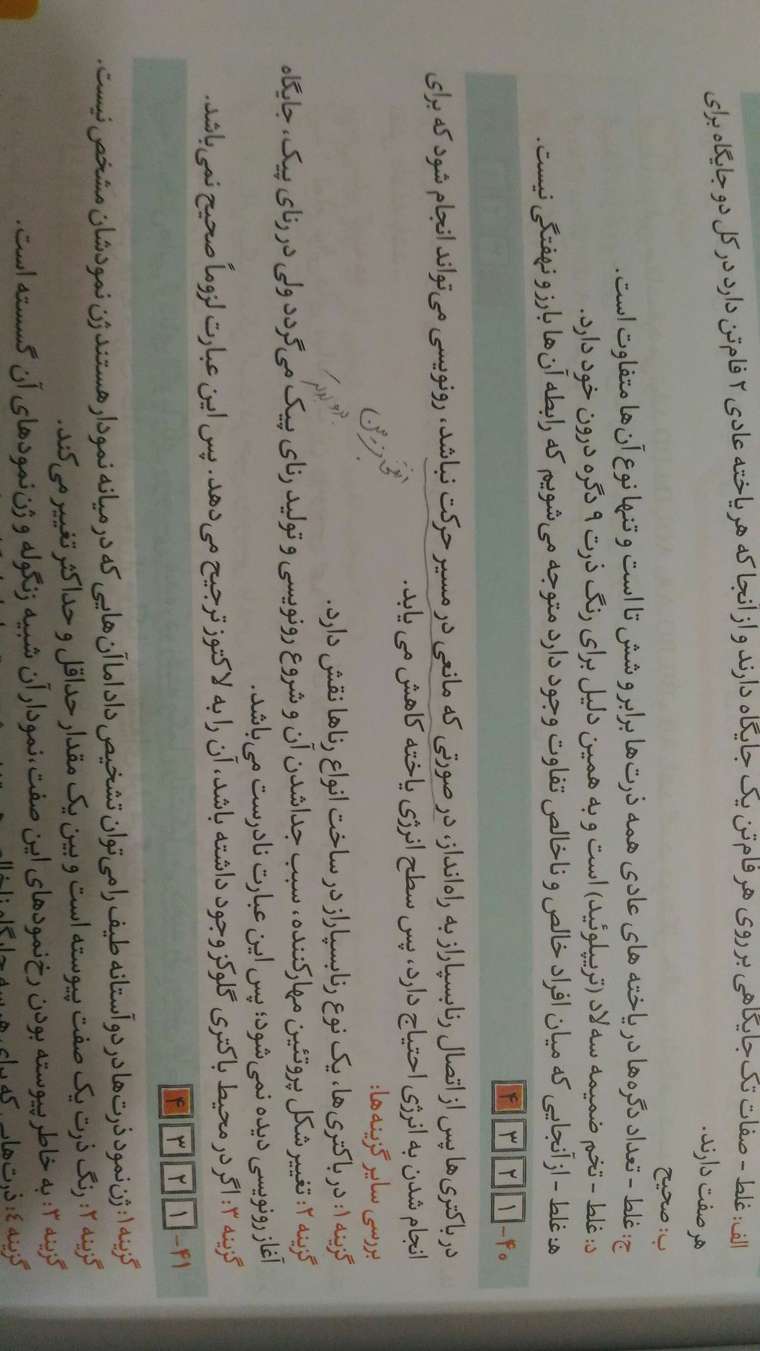 الف: غلط - صفات تک‌جایگاهی بر روی هر فام‌تن یک جایگاه دارند و از آنجا که هر یاخته عادی ۲ فام‌تن دارد در کل دو جایگاه برای
هر صفت دارند.
ب: صحیح
ج: غلط - تعداد دگره‌ها در یاخته های عادی همه ذرت‌ها برابر و شش تا است و تنها نوع آن‌ها متفاوت است.
د: غلط - تخم ضمیمه سه‌لاد (تریپلوئید) است و به همین دلیل برای رنگ ذرت ۹ دگره درون خود دارد.
ه: غلط - از آنجایی که میان افراد خالص و ناخالص تفاوت وجود دارد متوجه می‌شویم که رابطه آن‌ها بارز و نهفتگی نیست.
۴۰- ۱ ۲ ۳ ۴
در باکتری‌ها پس از اتصال رنابسپاراز به راه‌انداز، در صورتی که مانعی در مسیر حرکت نباشد، رونویسی می‌تواند انجام شود که برای
انجام شدن به انرژی احتیاج دارد، پس سطح انرژی یاخته کاهش می یابد.
بررسی سایر گزینه‌ها:
گزینه ۱: در باکتری‌ها، یک نوع رنابسپاراز در ساخت انواع رناها نقش دارد.
گزینه ۲: تغییر شکل پروتئین مهارکننده، سبب جداشدن آن و شروع رونویسی و تولید رنای پیک می‌گردد ولی در رنای پیک، جایگاه
آغاز رونویسی دیده نمی‌شود؛ پس این عبارت نادرست می‌باشد.
گزینه ۳: اگر در محیط باکتری گلوکز وجود داشته باشد، آن را به لاکتوز ترجیح می‌دهد. پس این عبارت لزوماً صحیح نمی‌باشد.
۴۱- ۱ ۲ ۳ ۴
گزینه ۱: ژن نمود ذرت‌ها در دو آستانه طیف را می‌توان تشخیص داد اما آن‌هایی که در میانه نمودار هستند ژن نمودشان مشخص نیست.
گزینه ۲: رنگ ذرت یک صفت پیوسته است و بین یک مقدار حداقل و حداکثر تغییر می‌کند.
گزینه ۳: به خاطر پیوسته بودن رخ‌نمودهای این صفت، نمودار آن شبیه زنگوله و ژن‌نمودهای آن گسسته است.
گزینه ۴: ذرت‌هایی که برای هر سه جایگاه ناخالص